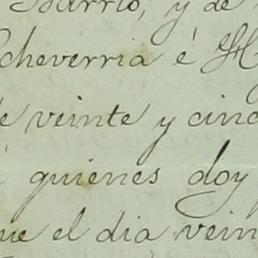 Barrio, y de
cheverria é
de veinte y cinc
quienes doy
que el dia vein